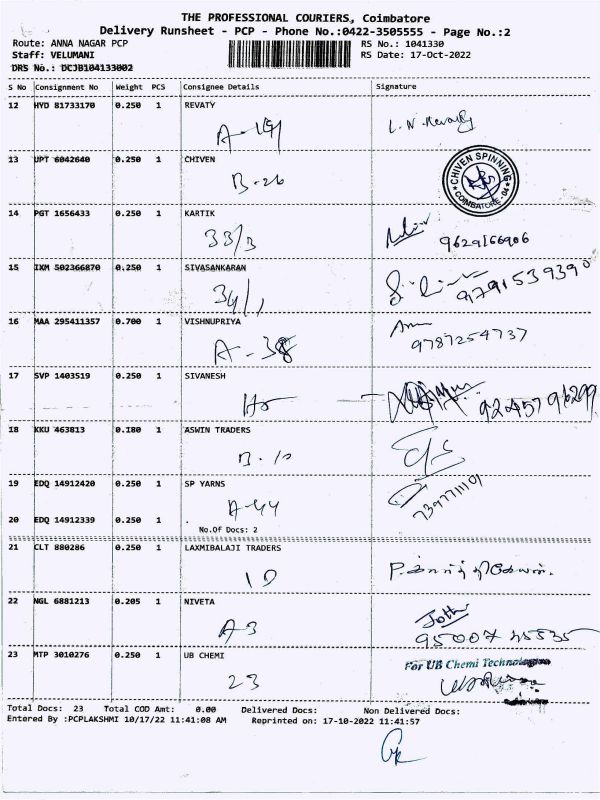 THE PROFESSIONAL COURIERS, Coimbatore
Delivery Runsheet - PCP - Phone No.:0422-3505555 - Page No.:2
Route: ANNA NAGAR PCP
RS No.: 1041330
Staff: VELUMANI
RS Date: 17-Oct-2022
DRS No.: DCJB104133002
S No Consignment No Weight PCS Consignee Details Signature
12 HYD 81733170 0.250 1 REVATY
L.N. Revaty
13 UPT 6042640 0.250 1 CHIVEN
B-26
CHIVEN SPINNING
COIMBATORE-04
14 PGT 1656433 0.250 1 KARTIK
33/3
9629166906
15 IXM 502366870 0.250 1 SIVASANKARAN
34/1
9791539390
16 MAA 295411357 0.700 1 VISHNUPRIYA
A-38
9787254737
17 SVP 1403519 0.250 1 SIVANESH
18 KKU 463813 0.180 1 ASWIN TRADERS
B-10
19 EDQ 14912420 0.250 1 SP YARNS
A-44
20 EDQ 14912339 0.250 1 .
No.Of Docs: 2
21 CLT 880286 0.250 1 LAXMIBALAJI TRADERS
10
22 NGL 6881213 0.205 1 NIVETA
A3
23 MTP 3010276 0.250 1 UB CHEMI
23
For UB Chemi Technologies
Total Docs: 23 Total COD Amt: 0.00 Delivered Docs: Non Delivered Docs:
Entered By :PCPLAKSHMI 10/17/22 11:41:08 AM Reprinted on: 17-10-2022 11:41:57